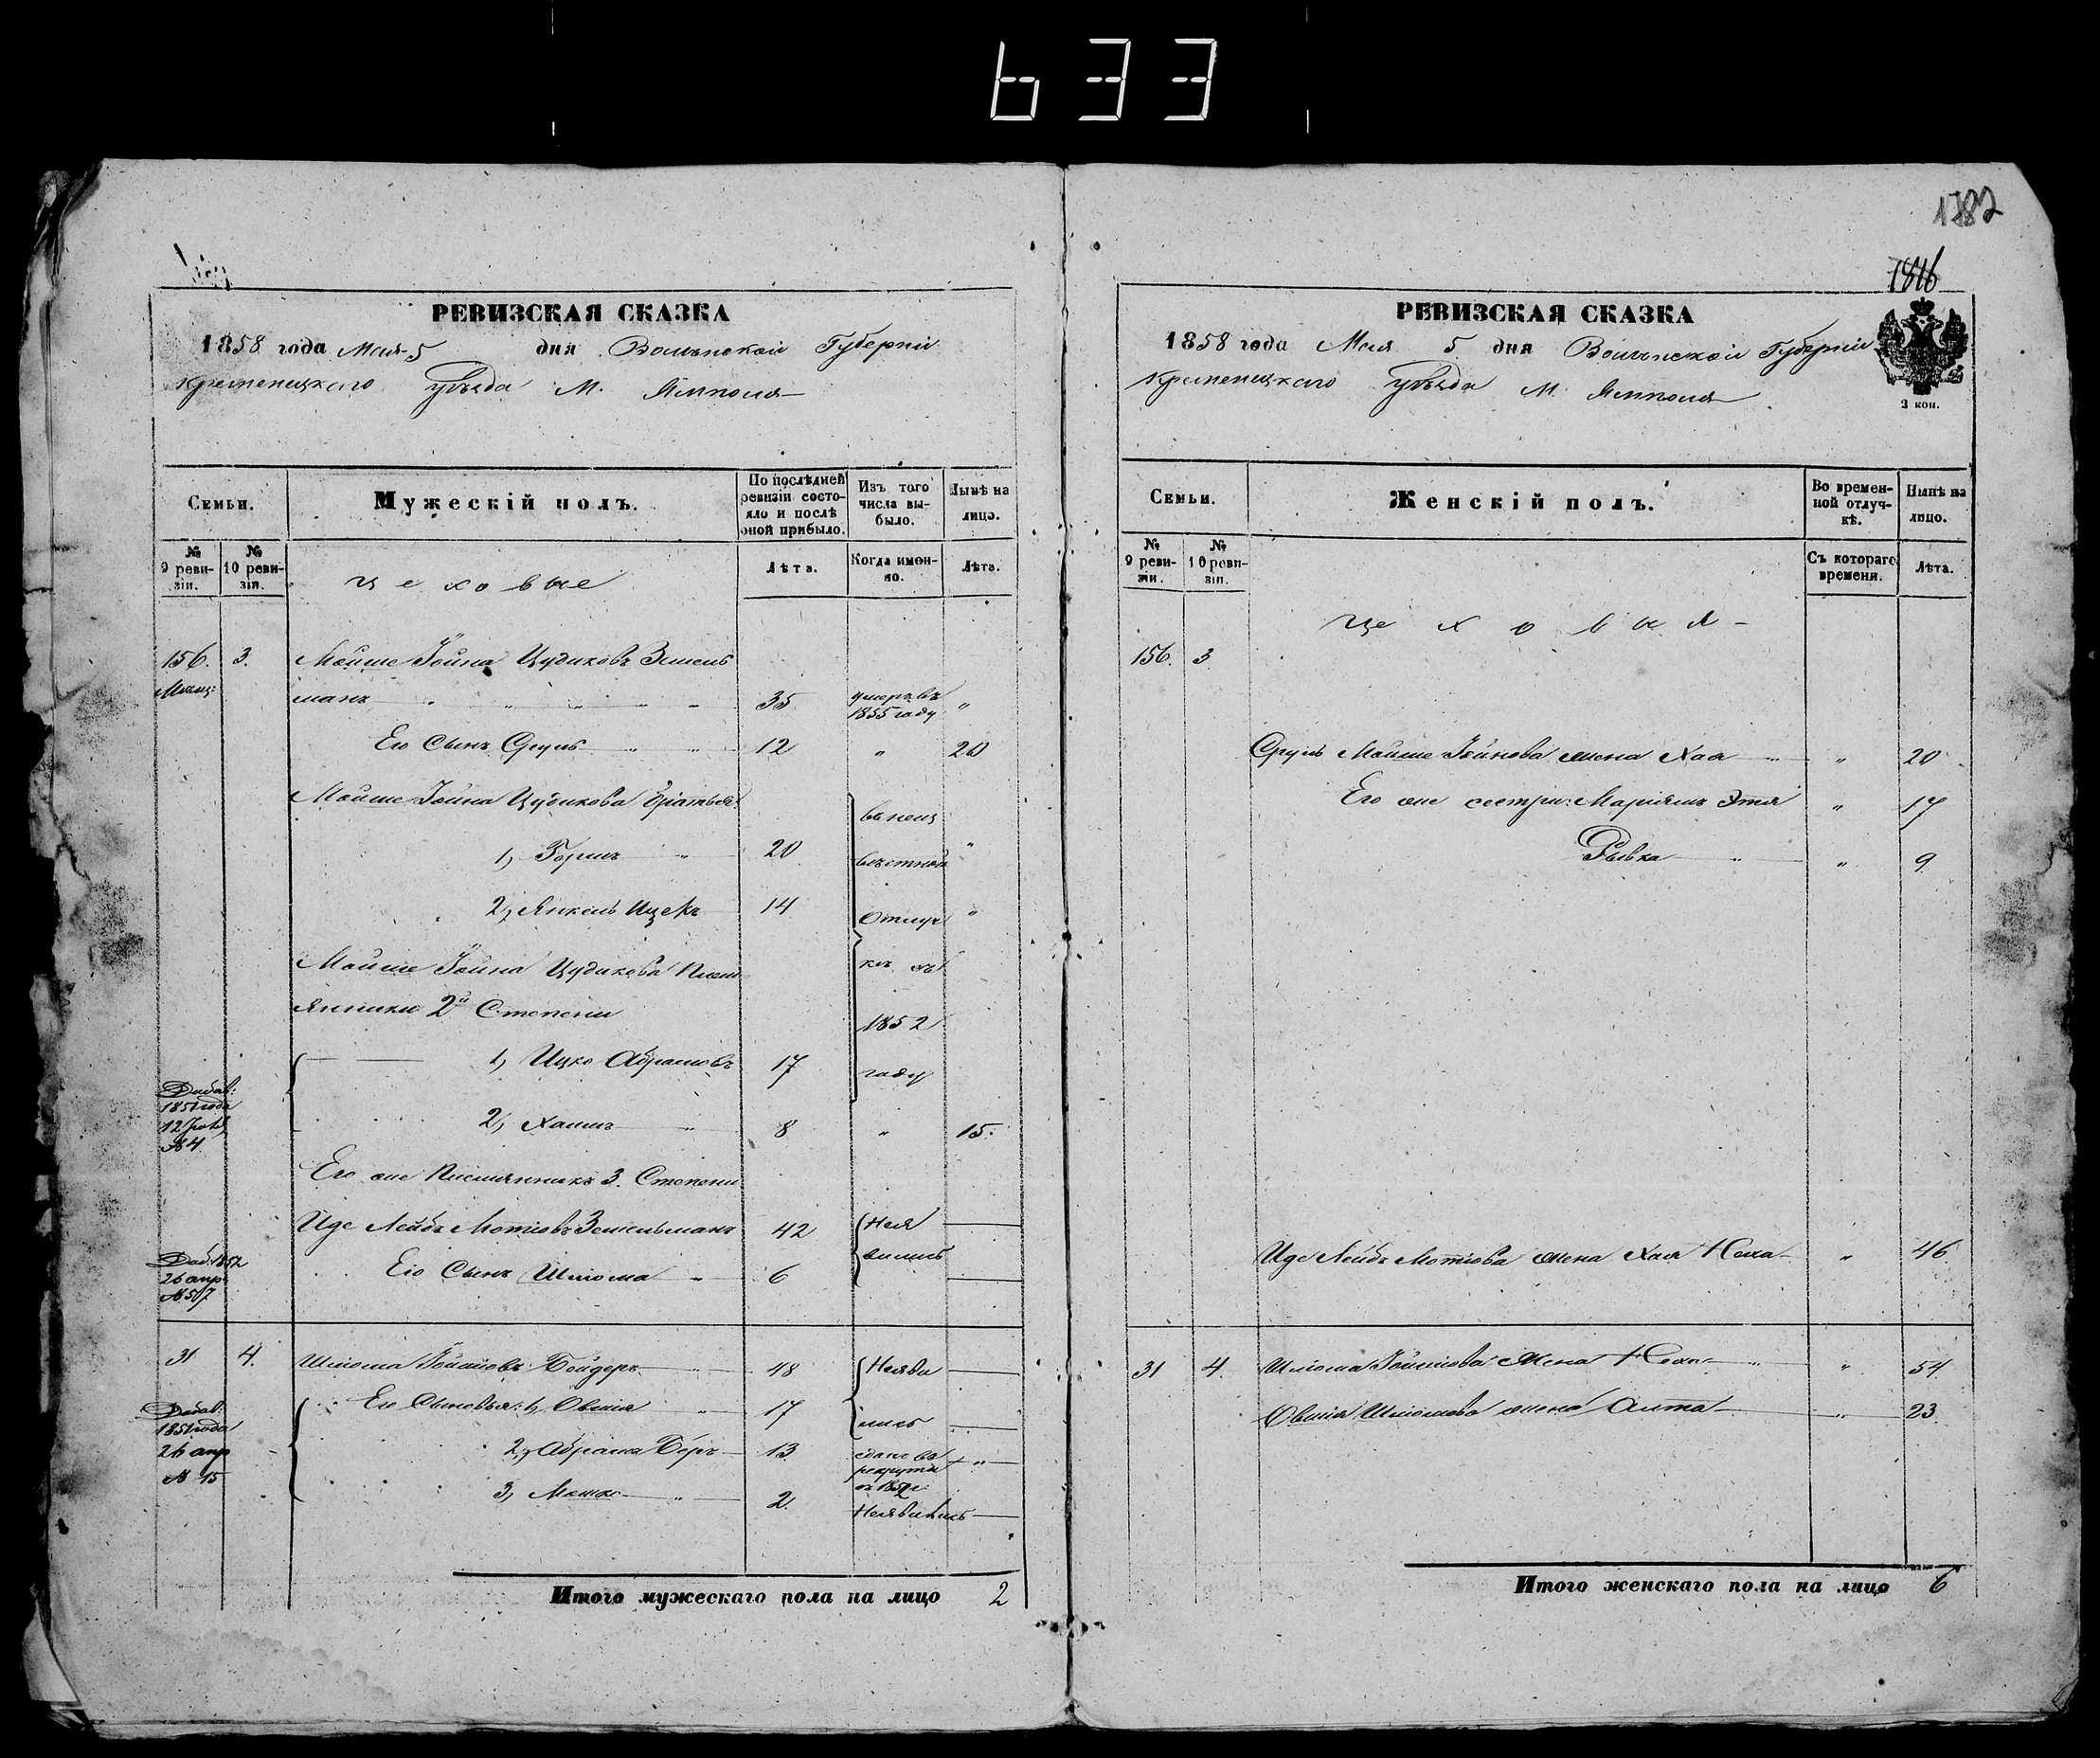 633
1782
1816
РЕВИЗСКАЯ СКАЗКА
1858 года Мая 5 дня Волынской Губерніи
Кременецкаго уѣзда М. Ямполя
Семьи.
Мужескій полъ.
По послѣдней ревизіи состояло и послѣ оной прибыло.
Изъ того числа выбыло.
Нынѣ на лицо.
№ 9 ревизіи.
№ 10 ревизіи.
цеховые
Лѣта.
Когда именно.
Лѣта.
156. 3. Мойше Іойна Цудиковъ Зетель
Мѣщ: манъ 35 умеръ въ 1855 году "
Его Сынъ Сруль 12 " 20
Мойше Іойна Цудикова братья:
1, Боришъ 20 въ неиз
вѣстной "
2, Янкель Ицекъ 14 Отлуч "
Мойше Іойна Цудикова Плем
кѣ съ
янники 2й Степени
1852
1, Ицко Абрамовъ 17 году
Добав:
1851 года
12
№ 4
2, Хаимъ 8 " 15.
Его же Племянникъ 3. Степени
Иде Лейбъ Мотіовъ Зетельманъ 42 Нея
вились
Его Сынъ Шлома 6
Доб. 1852
26 апр
№ 507
31 4. Шлома Іойшіовъ Бейдеръ 48 Неяви
Его Сыновья: 1, Овшія 17 лись
Добав:
1851 года
26 апр
№ 15
2, Абрама Беръ 13 сданъ въ рекруты въ 1852 г. "
3, 2. Неявились
Итого мужескаго пола на лицо 2
РЕВИЗСКАЯ СКАЗКА
1858 года Мая 5 дня Волынской Губерніи
Кременецкаго уѣзда М. Ямполя
3 коп.
Семьи.
Женскій полъ.
Во временной отлучкѣ.
Нынѣ на лицо.
№ 9 ревизіи.
№ 10 ревизіи.
Съ котораго времени.
Лѣта.
цеховыя
156. 3
Сруль Мойше Іойнова жена Хая " 20
Его же сестры: Маріямъ Этля " 17
Рывка " 9
Иде Лейбъ Мотіова жена Хая Неха " 46
31 4. Шлома Іойшіова жена Неха " 54
Овшія Шломова жена Алта 23.
Итого женскаго пола на лицо 6